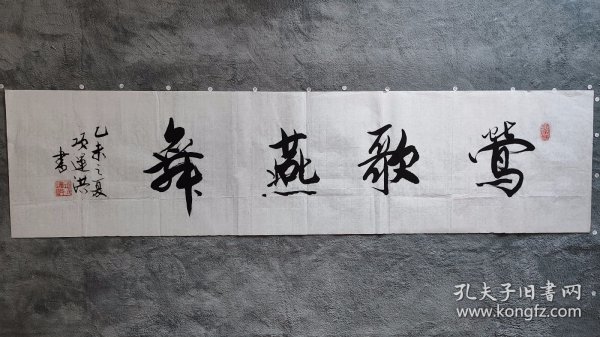 莺歌燕舞
乙未之夏
项运洪
书
孔夫子旧書网
www.kongfz.com